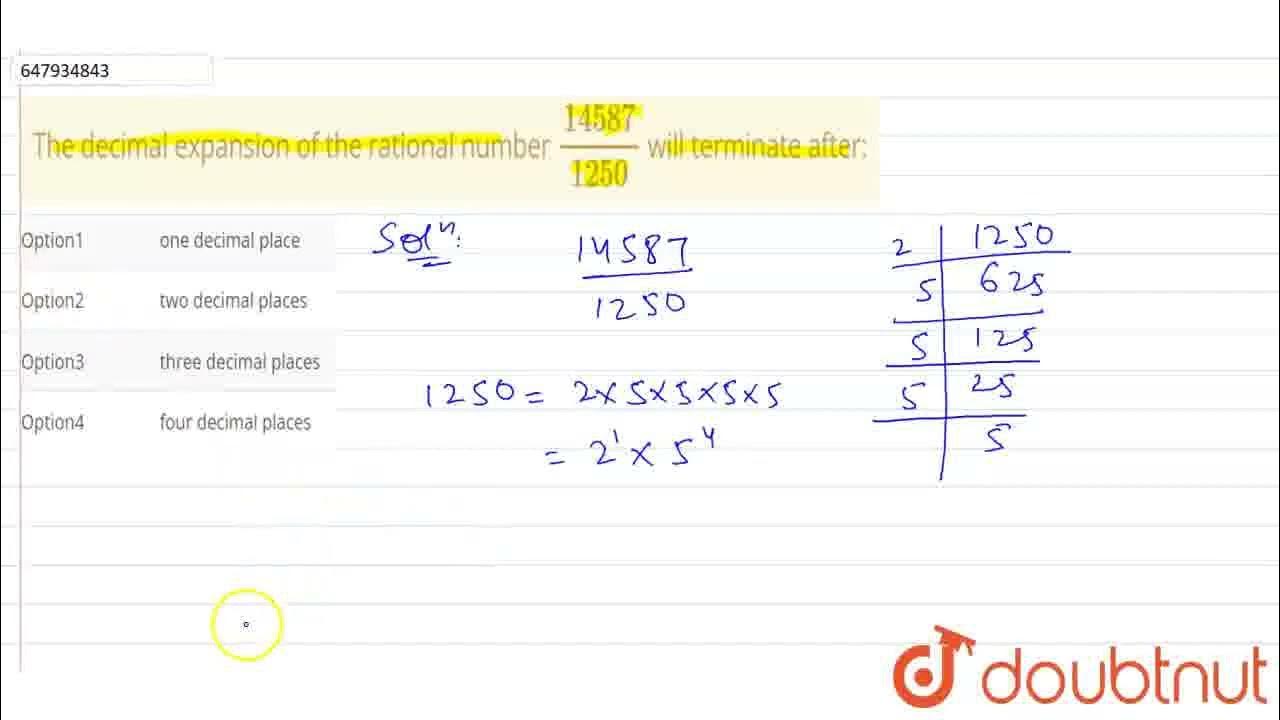 647934843
The decimal expansion of the rational number 14587/1250 will terminate after:
Option1 one decimal place
Option2 two decimal places
Option3 three decimal places
Option4 four decimal places
Solⁿ:
14587
1250
1250 = 2×5×5×5×5
= 2¹ × 5⁴
2 | 1250
5 | 625
5 | 125
5 | 25
| 5
doubtnut